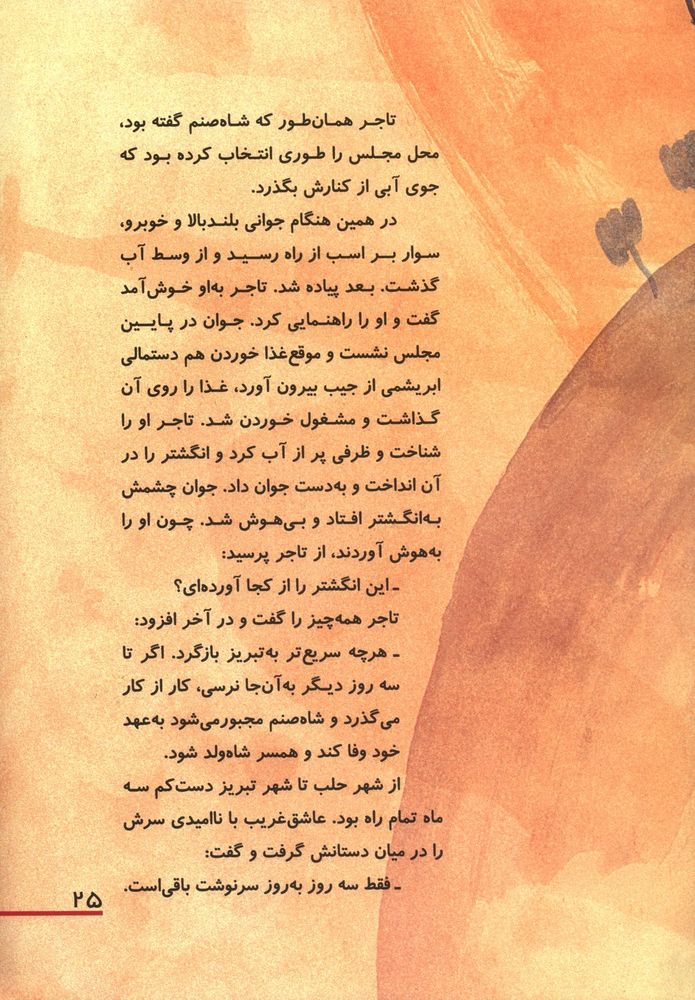 تاجر همان‌طور که شاه‌صنم گفته بود،
محل مجلس را طوری انتخاب کرده بود که
جوی آبی از کنارش بگذرد.
در همین هنگام جوانی بلندبالا و خوبرو،
سوار بر اسب از راه رسید و از وسط آب
گذشت. بعد پیاده شد. تاجر به‌او خوش‌آمد
گفت و او را راهنمایی کرد. جوان در پایین
مجلس نشست و موقع‌غذا خوردن هم دستمالی
ابریشمی از جیب بیرون آورد، غذا را روی آن
گذاشت و مشغول خوردن شد. تاجر او را
شناخت و ظرفی پر از آب کرد و انگشتر را در
آن انداخت و به‌دست جوان داد. جوان چشمش
به‌انگشتر افتاد و بی‌هوش شد. چون او را
به‌هوش آوردند، از تاجر پرسید:
ـ این انگشتر را از کجا آورده‌ای؟
تاجر همه‌چیز را گفت و در آخر افزود:
ـ هرچه سریع‌تر به‌تبریز بازگرد. اگر تا
سه روز دیگر به‌آن‌جا نرسی، کار از کار
می‌گذرد و شاه‌صنم مجبورمی‌شود به‌عهد
خود وفا کند و همسر شاه‌ولد شود.
از شهر حلب تا شهر تبریز دست‌کم سه
ماه تمام راه بود. عاشق‌غریب با ناامیدی سرش
را در میان دستانش گرفت و گفت:
ـ فقط سه روز به‌روز سرنوشت باقی‌است.
۲۵